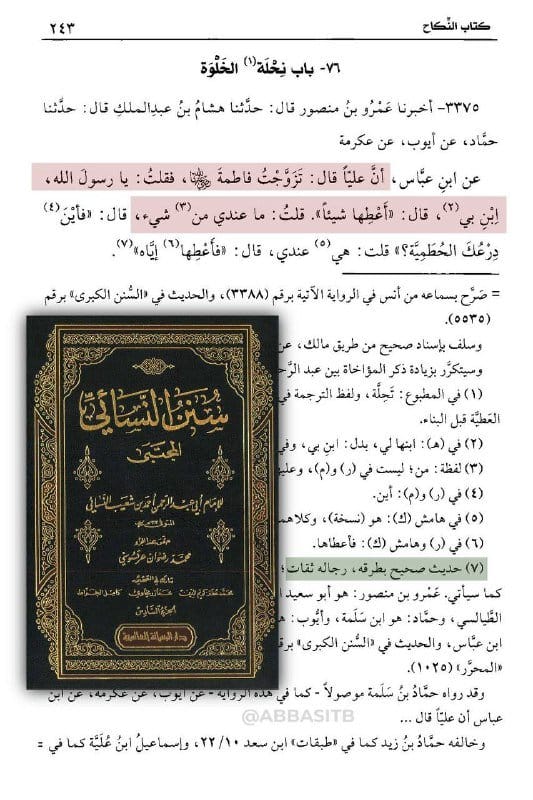 كتاب النِّكاح
٢٤٣
٧٦- باب نِحْلَة(١) الخَلْوَة
٣٣٧٥- أخبرنا عَمْرُو بنُ منصور قال: حدَّثنا هشامُ بنُ عبدِالملكِ قال: حدَّثنا
حمَّاد، عن أيوب، عن عكرمة
عن ابنِ عبَّاس، أنَّ عليّاً قال: تَزَوَّجْتُ فاطمةَ ﵂، فقلتُ: يا رسولَ الله،
اِبْنِ بي(٢)، قال: «أَعْطِها شيئاً». قلتُ: ما عندي من(٣) شيء، قال: «فأَيْنَ(٤)
دِرْعُكَ الحُطَمِيَّة؟» قلت: هي(٥) عندي، قال: «فأَعْطِها(٦) إيَّاه»(٧).
= صَرَّح بسماعه من أنس في الرواية الآتية برقم (٣٣٨٨)، والحديث في «السُّنن الكبرى» برقم
(٥٥٣٥).
وسلف بإسناد صحيح من طريق مالك، عن
وسيتكرَّر بزيادة ذكر المؤاخاة بين عبد الرَّح
(١) في المطبوع: تَحِلَّة، ولفظ الترجمة في
العَطيَّة قبل البناء.
(٢) في (هـ): ابنها لي، بدل: ابنِ بي، وفي
(٣) لفظة: من؛ ليست في (ر) و(م)، وعليه
(٤) في (ر) و(م): أين.
(٥) في هامش (ك): هو (نسخة)، وكلاهم
(٦) في (ر) وهامش (ك): فأعطاها.
(٧) حديث صحيح بطرقه، رجاله ثقات؛
كما سيأتي. عَمْرو بن منصور: هو أبو سعيد
الطَّيالسي، وحمَّاد: هو ابن سَلَمة، وأيُّوب: هو
ابن عبَّاس، والحديث في «السُّنن الكبرى» برقم
«المحرَّر» (١٠٢٥).
وقد رواه حمَّادُ بنُ سَلَمة موصولاً - كما في هذه الرواية - عن أيوب، عن عكرمة، عن ابن
عباس أن عليّاً قال ...
وخالفه حمَّادُ بنُ زيد كما في «طبقات» ابن سعد ٢٢/١٠، وإسماعيلُ ابنُ عُلَيَّة كما في =
سنن النسائي
المجتبى
للإمام أبي عبد الرحمن أحمد بن شعيب النسائي
محمد رضوان عرقسوسي
الجزء السادس
دار الرسالة العالمية
@ABBASITB